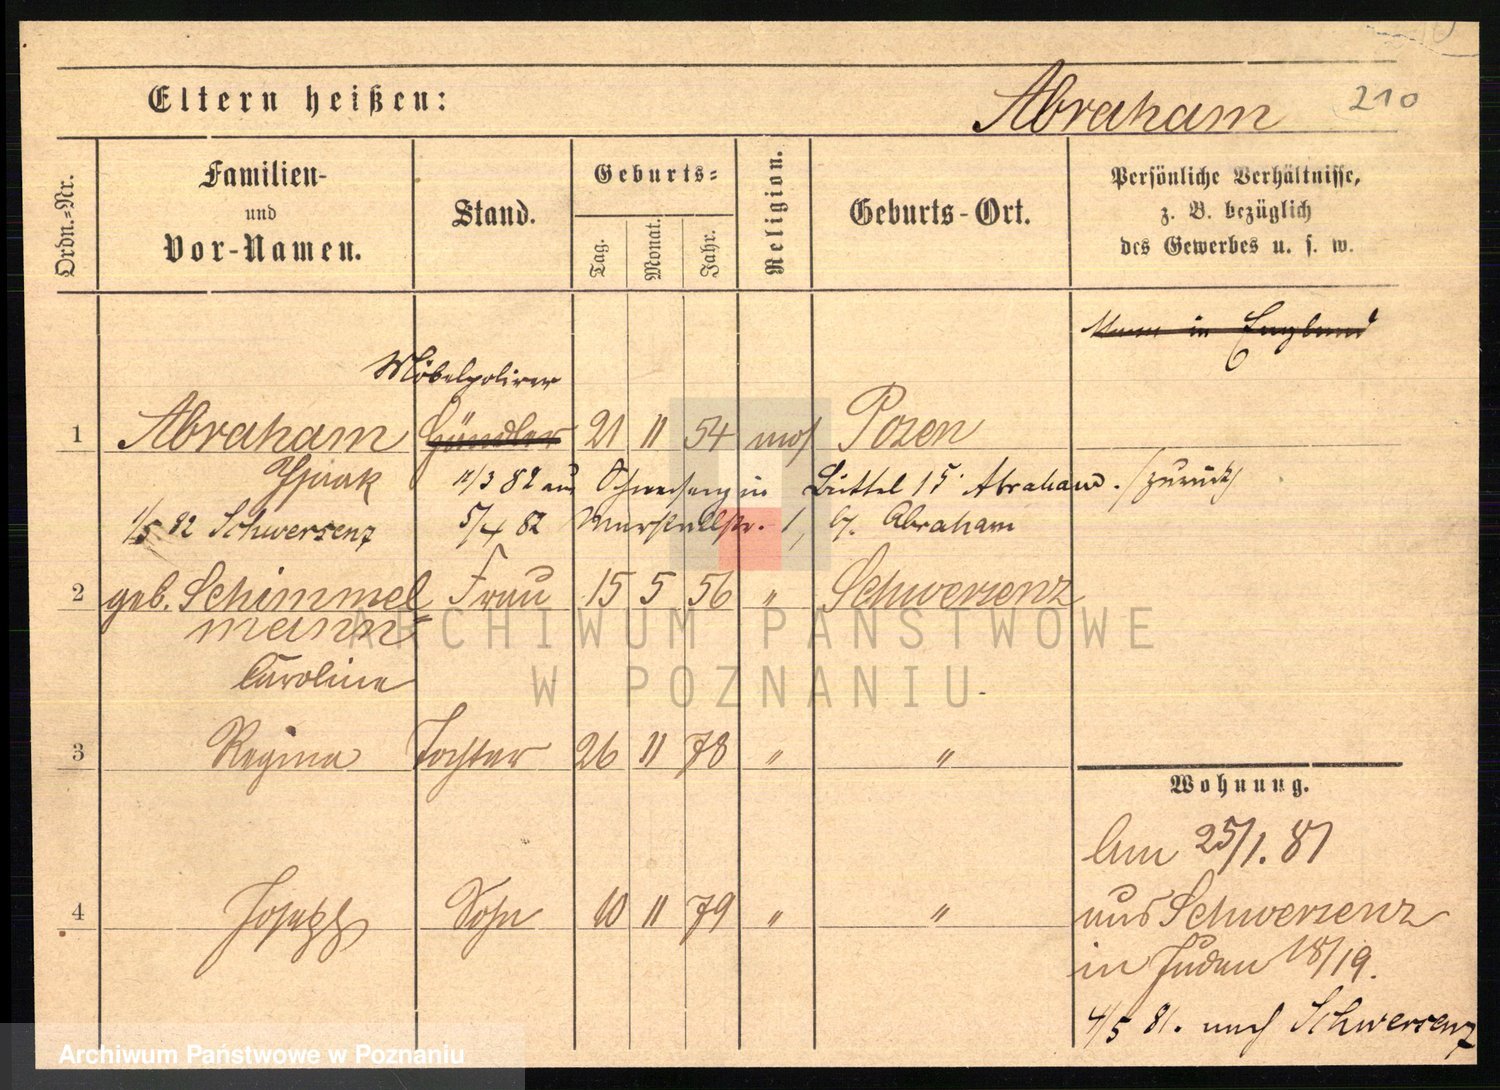 210
Eltern heißen:
Abraham
Ordn.-Nr.
Familien-
und
Vor-Namen.
Stand.
Geburts-
Tag.
Monat.
Jahr.
Religion.
Geburts-Ort.
Persönliche Verhältnisse,
z. B. bezüglich
des Gewerbes u. s. w.
Mann in England
Möbelpolirer
1 Abraham Händler 21 11 54 mos Posen
Isaak 11/3 82 aus Schwersenz in Büttel 15 Abraham. /zurück/
1/5 82 Schwersenz 5/4 82 1, b/. Abraham
2 geb. Schimmel Frau 15 5 56 " Schwersenz
mann
Caroline
3 Regina Tochter 26 11 78 " "
4 Joseph Sohn 10 11 79 " "
Wohnung.
Am 25/1. 81
aus Schwersenz
in Juden 18/19.
4/5 81. nach Schwersenz
ARCHIWUM PAŃSTWOWE
W POZNANIU
Archiwum Państwowe w Poznaniu